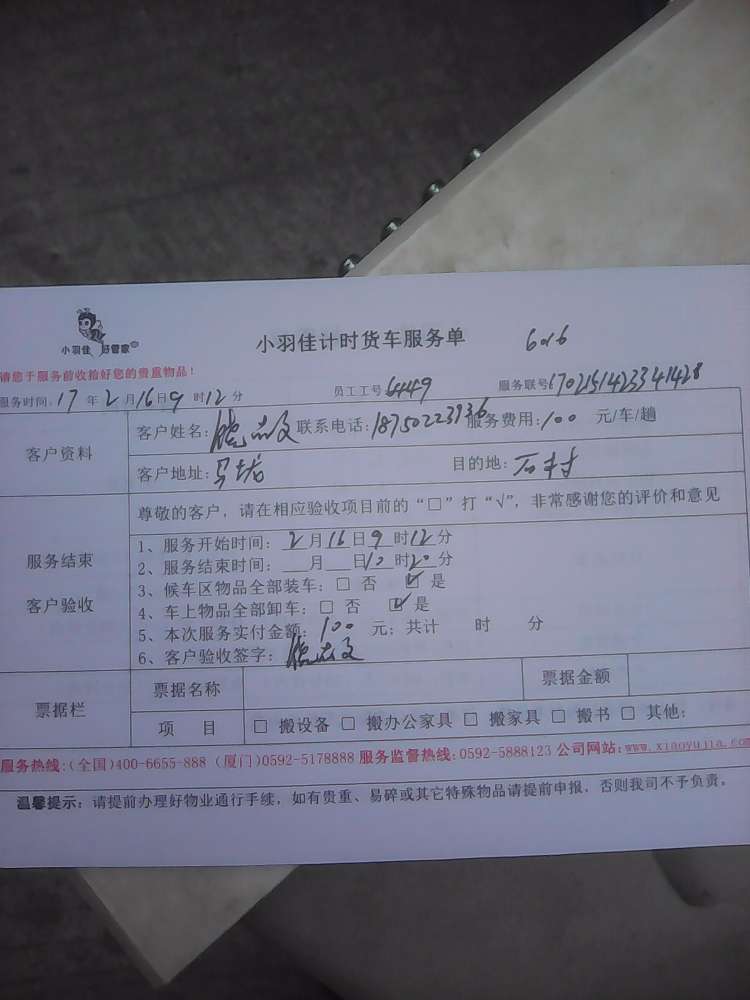 小羽佳 好管家
小羽佳计时货车服务单 6016
请您于服务前收拾好您的贵重物品！
服务时间：17年2月16日9时12分 员工工号 6449 服务联号 1702151423341428
客户资料
客户姓名： 联系电话：18750223936 服务费用：100 元/车/趟
客户地址： 目的地：石村
尊敬的客户，请在相应验收项目前的“□”打“√”，非常感谢您的评价和意见
服务结束
客户验收
1、服务开始时间：2月16日9时12分
2、服务结束时间：__月__日10时20分
3、候车区物品全部装车：□ 否 ☑ 是
4、车上物品全部卸车：□ 否 ☑ 是
5、本次服务实付金额：100 元；共计 时 分
6、客户验收签字：
票据栏
票据名称 票据金额
项 目 □ 搬设备 □ 搬办公家具 □ 搬家具 □ 搬书 □ 其他：
服务热线：(全国)400-6655-888 (厦门)0592-5178888 服务监督热线：0592-5888123 公司网站：www.xiaoyujia.com
温馨提示：请提前办理好物业通行手续，如有贵重、易碎或其它特殊物品请提前申报，否则我司不予负责。